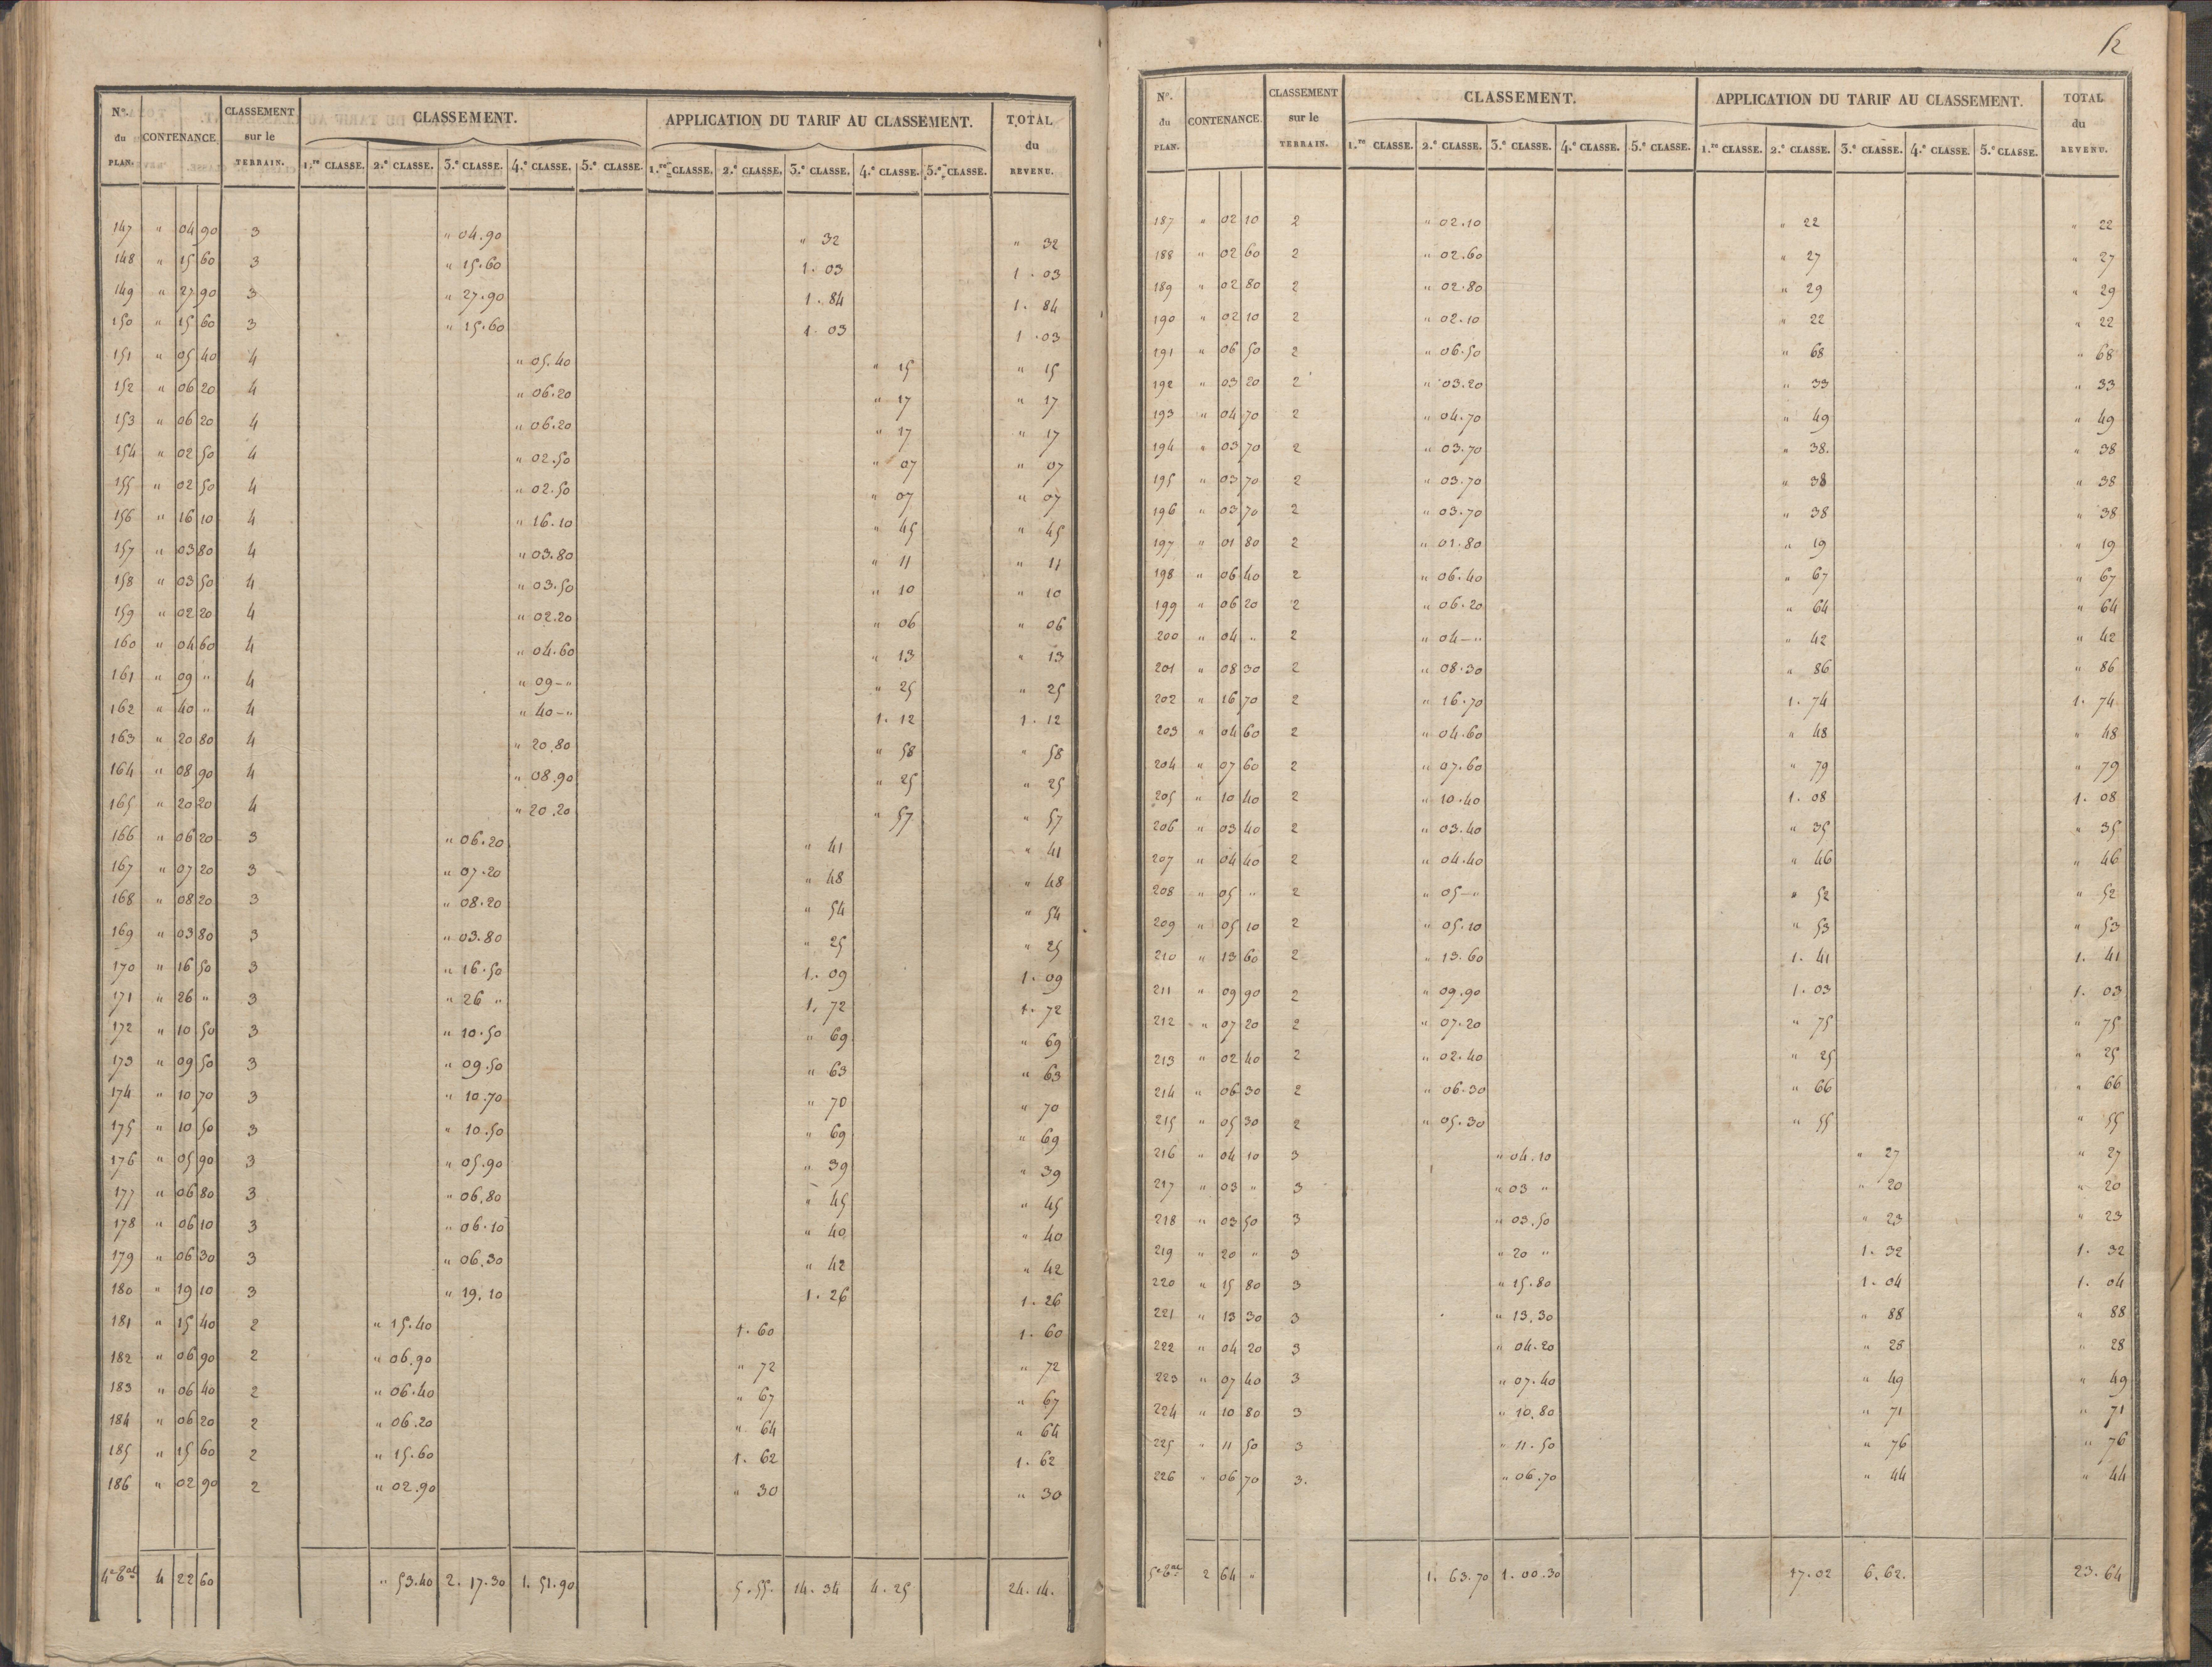 N.º du PLAN. CONTENANCE. CLASSEMENT sur le TERRAIN. CLASSEMENT. APPLICATION DU TARIF AU CLASSEMENT. TOTAL du REVENU.
1.re CLASSE. 2.e CLASSE. 3.e CLASSE. 4.e CLASSE. 5.e CLASSE. 1.re CLASSE. 2.e CLASSE. 3.e CLASSE. 4.e CLASSE. 5.e CLASSE.
147 " 04 90 3 " 04.90 " 32 " 32
148 " 15 60 3 " 15.60 1. 03 1. 03
149 " 27 90 3 " 27.90 1. 84 1. 84
150 " 15 60 3 " 15.60 1. 03 1. 03
151 " 05 40 4 " 05.40 " 15 " 15
152 " 06 20 4 " 06.20 " 17 " 17
153 " 06 20 4 " 06.20 " 17 " 17
154 " 02 50 4 " 02.50 " 07 " 07
155 " 02 50 4 " 02.50 " 07 " 07
156 " 16 10 4 " 16.10 " 45 " 45
157 " 03 80 4 " 03.80 " 11 " 11
158 " 03 50 4 " 03.50 " 10 " 10
159 " 02 20 4 " 02.20 " 06 " 06
160 " 04 60 4 " 04.60 " 13 " 13
161 " 09 " 4 " 09-" " 25 " 25
162 " 40 " 4 " 40-" 1. 12 1. 12
163 " 20 80 4 " 20.80 " 58 " 58
164 " 08 90 4 " 08.90 " 25 " 25
165 " 20 20 4 " 20.20 " 57 " 57
166 " 06 20 3 " 06.20 " 41 " 41
167 " 07 20 3 " 07.20 " 48 " 48
168 " 08 20 3 " 08.20 " 54 " 54
169 " 03 80 3 " 03.80 " 25 " 25
170 " 16 50 3 " 16.50 1. 09 1. 09
171 " 26 " 3 " 26 " 1. 72 1. 72
172 " 10 50 3 " 10.50 " 69 " 69
173 " 09 50 3 " 09.50 " 63 " 63
174 " 10 70 3 " 10.70 " 70 " 70
175 " 10 50 3 " 10.50 " 69 " 69
176 " 05 90 3 " 05.90 " 39 " 39
177 " 06 80 3 " 06.80 " 45 " 45
178 " 06 10 3 " 06.10 " 40 " 40
179 " 06 30 3 " 06.30 " 42 " 42
180 " 19 10 3 " 19.10 1. 26 1. 26
181 " 15 40 2 " 15.40 1. 60 1. 60
182 " 06 90 2 " 06.90 " 72 " 72
183 " 06 40 2 " 06.40 " 67 " 67
184 " 06 20 2 " 06.20 " 64 " 64
185 " 15 60 2 " 15.60 1. 62 1. 62
186 " 02 90 2 " 02.90 " 30 " 30
4 22 60 " 53.40 2. 17.30 1. 51.90 5. 55. 14. 34 4. 25 24. 14.
N.º du PLAN. CONTENANCE. CLASSEMENT sur le TERRAIN. CLASSEMENT. APPLICATION DU TARIF AU CLASSEMENT. TOTAL du REVENU.
1.re CLASSE. 2.e CLASSE. 3.e CLASSE. 4.e CLASSE. 5.e CLASSE. 1.re CLASSE. 2.e CLASSE. 3.e CLASSE. 4.e CLASSE. 5.e CLASSE.
187 " 02 10 2 " 02.10 " 22 " 22
188 " 02 60 2 " 02.60 " 27 " 27
189 " 02 80 2 " 02.80 " 29 " 29
190 " 02 10 2 " 02.10 " 22 " 22
191 " 06 50 2 " 06.50 " 68 " 68
192 " 03 20 2 " 03.20 " 33 " 33
193 " 04 70 2 " 04.70 " 49 " 49
194 " 03 70 2 " 03.70 " 38. " 38
195 " 03 70 2 " 03.70 " 38 " 38
196 " 03 70 2 " 03.70 " 38 " 38
197 " 01 80 2 " 01.80 " 19 " 19
198 " 06 40 2 " 06.40 " 67 " 67
199 " 06 20 2 " 06.20 " 64 " 64
200 " 04 " 2 " 04-" " 42 " 42
201 " 08 30 2 " 08.30 " 86 " 86
202 " 16 70 2 " 16.70 1. 74 1. 74
203 " 04 60 2 " 04.60 " 48 " 48
204 " 07 60 2 " 07.60 " 79 " 79
205 " 10 40 2 " 10.40 1. 08 1. 08
206 " 03 40 2 " 03.40 " 35 " 35
207 " 04 40 2 " 04.40 " 46 " 46
208 " 05 " 2 " 05-" " 52 " 52
209 " 05 10 2 " 05.10 " 53 " 53
210 " 13 60 2 " 13.60 1. 41 1. 41
211 " 09 90 2 " 09.90 1. 03 1. 03
212 " 07 20 2 " 07.20 " 75 " 75
213 " 02 40 2 " 02.40 " 25 " 25
214 " 06 30 2 " 06.30 " 66 " 66
215 " 05 30 2 " 05.30 " 55 " 55
216 " 04 10 3 " 04.10 " 27 " 27
217 " 03 " 3 " 03 " " 20 " 20
218 " 03 50 3 " 03.50 " 23 " 23
219 " 20 " 3 " 20 " 1. 32 1. 32
220 " 15 80 3 " 15.80 1. 04 1. 04
221 " 13 30 3 " 13.30 " 88 " 88
222 " 04 20 3 " 04.20 " 28 " 28
223 " 07 40 3 " 07.40 " 49 " 49
224 " 10 80 3 " 10.80 " 71 " 71
225 " 11 50 3 " 11.50 " 76 " 76
226 " 06 70 3. " 06.70 " 44 " 44
2 64 " 1. 63.70 1. 00.30 17.02 6.62. 23.64